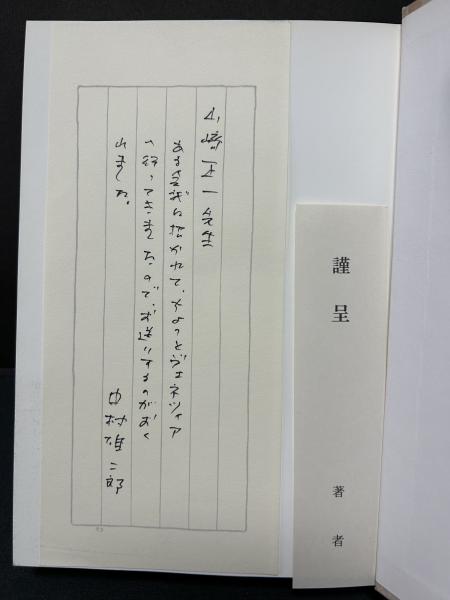 山崎正一先生
ある会議に招かれて、ちょっとヴェネツィア
へ行ってきましたので、お送りするのがおく
れました。
中村雄二郎
謹呈
著者